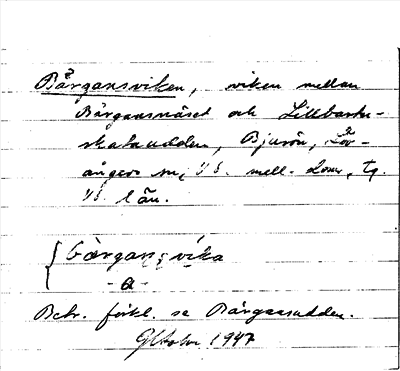 Bårgansviken, viken mellan
Bårgansnäset och Lillbastu-
skataudden, Bjurön, Löv-
ångers sn, Vb. mell. doms. tg.
Vb. län.
bǻrgansvika
-a-
Betr. förkl. se Bårgansudden.
1947